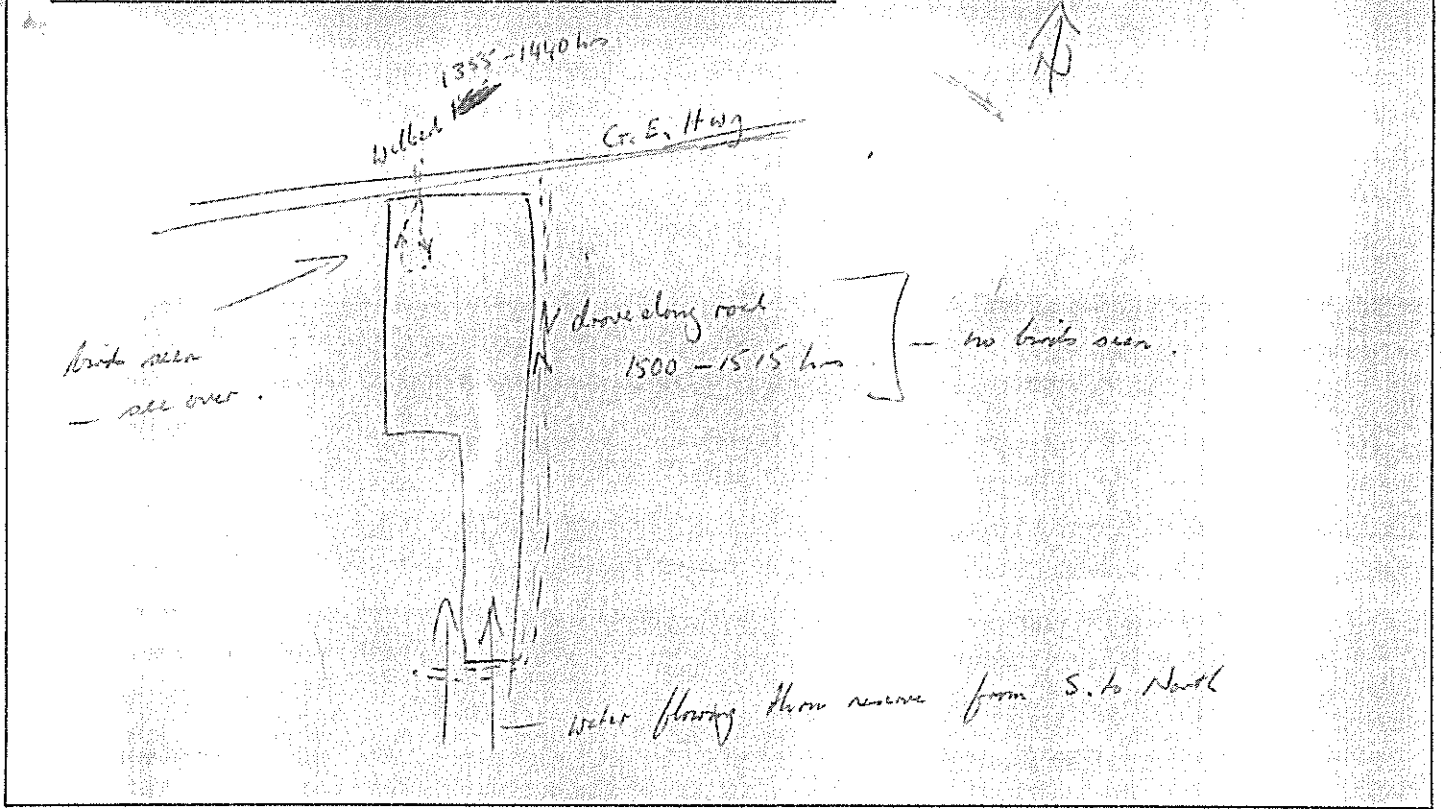 1355-1440 hrs
Walked
N
Gt. E. Hwy
drove along road
1500-1515 hrs
- no birds seen.
birds seen
- see over.
water flowing thru reserve from S. to North